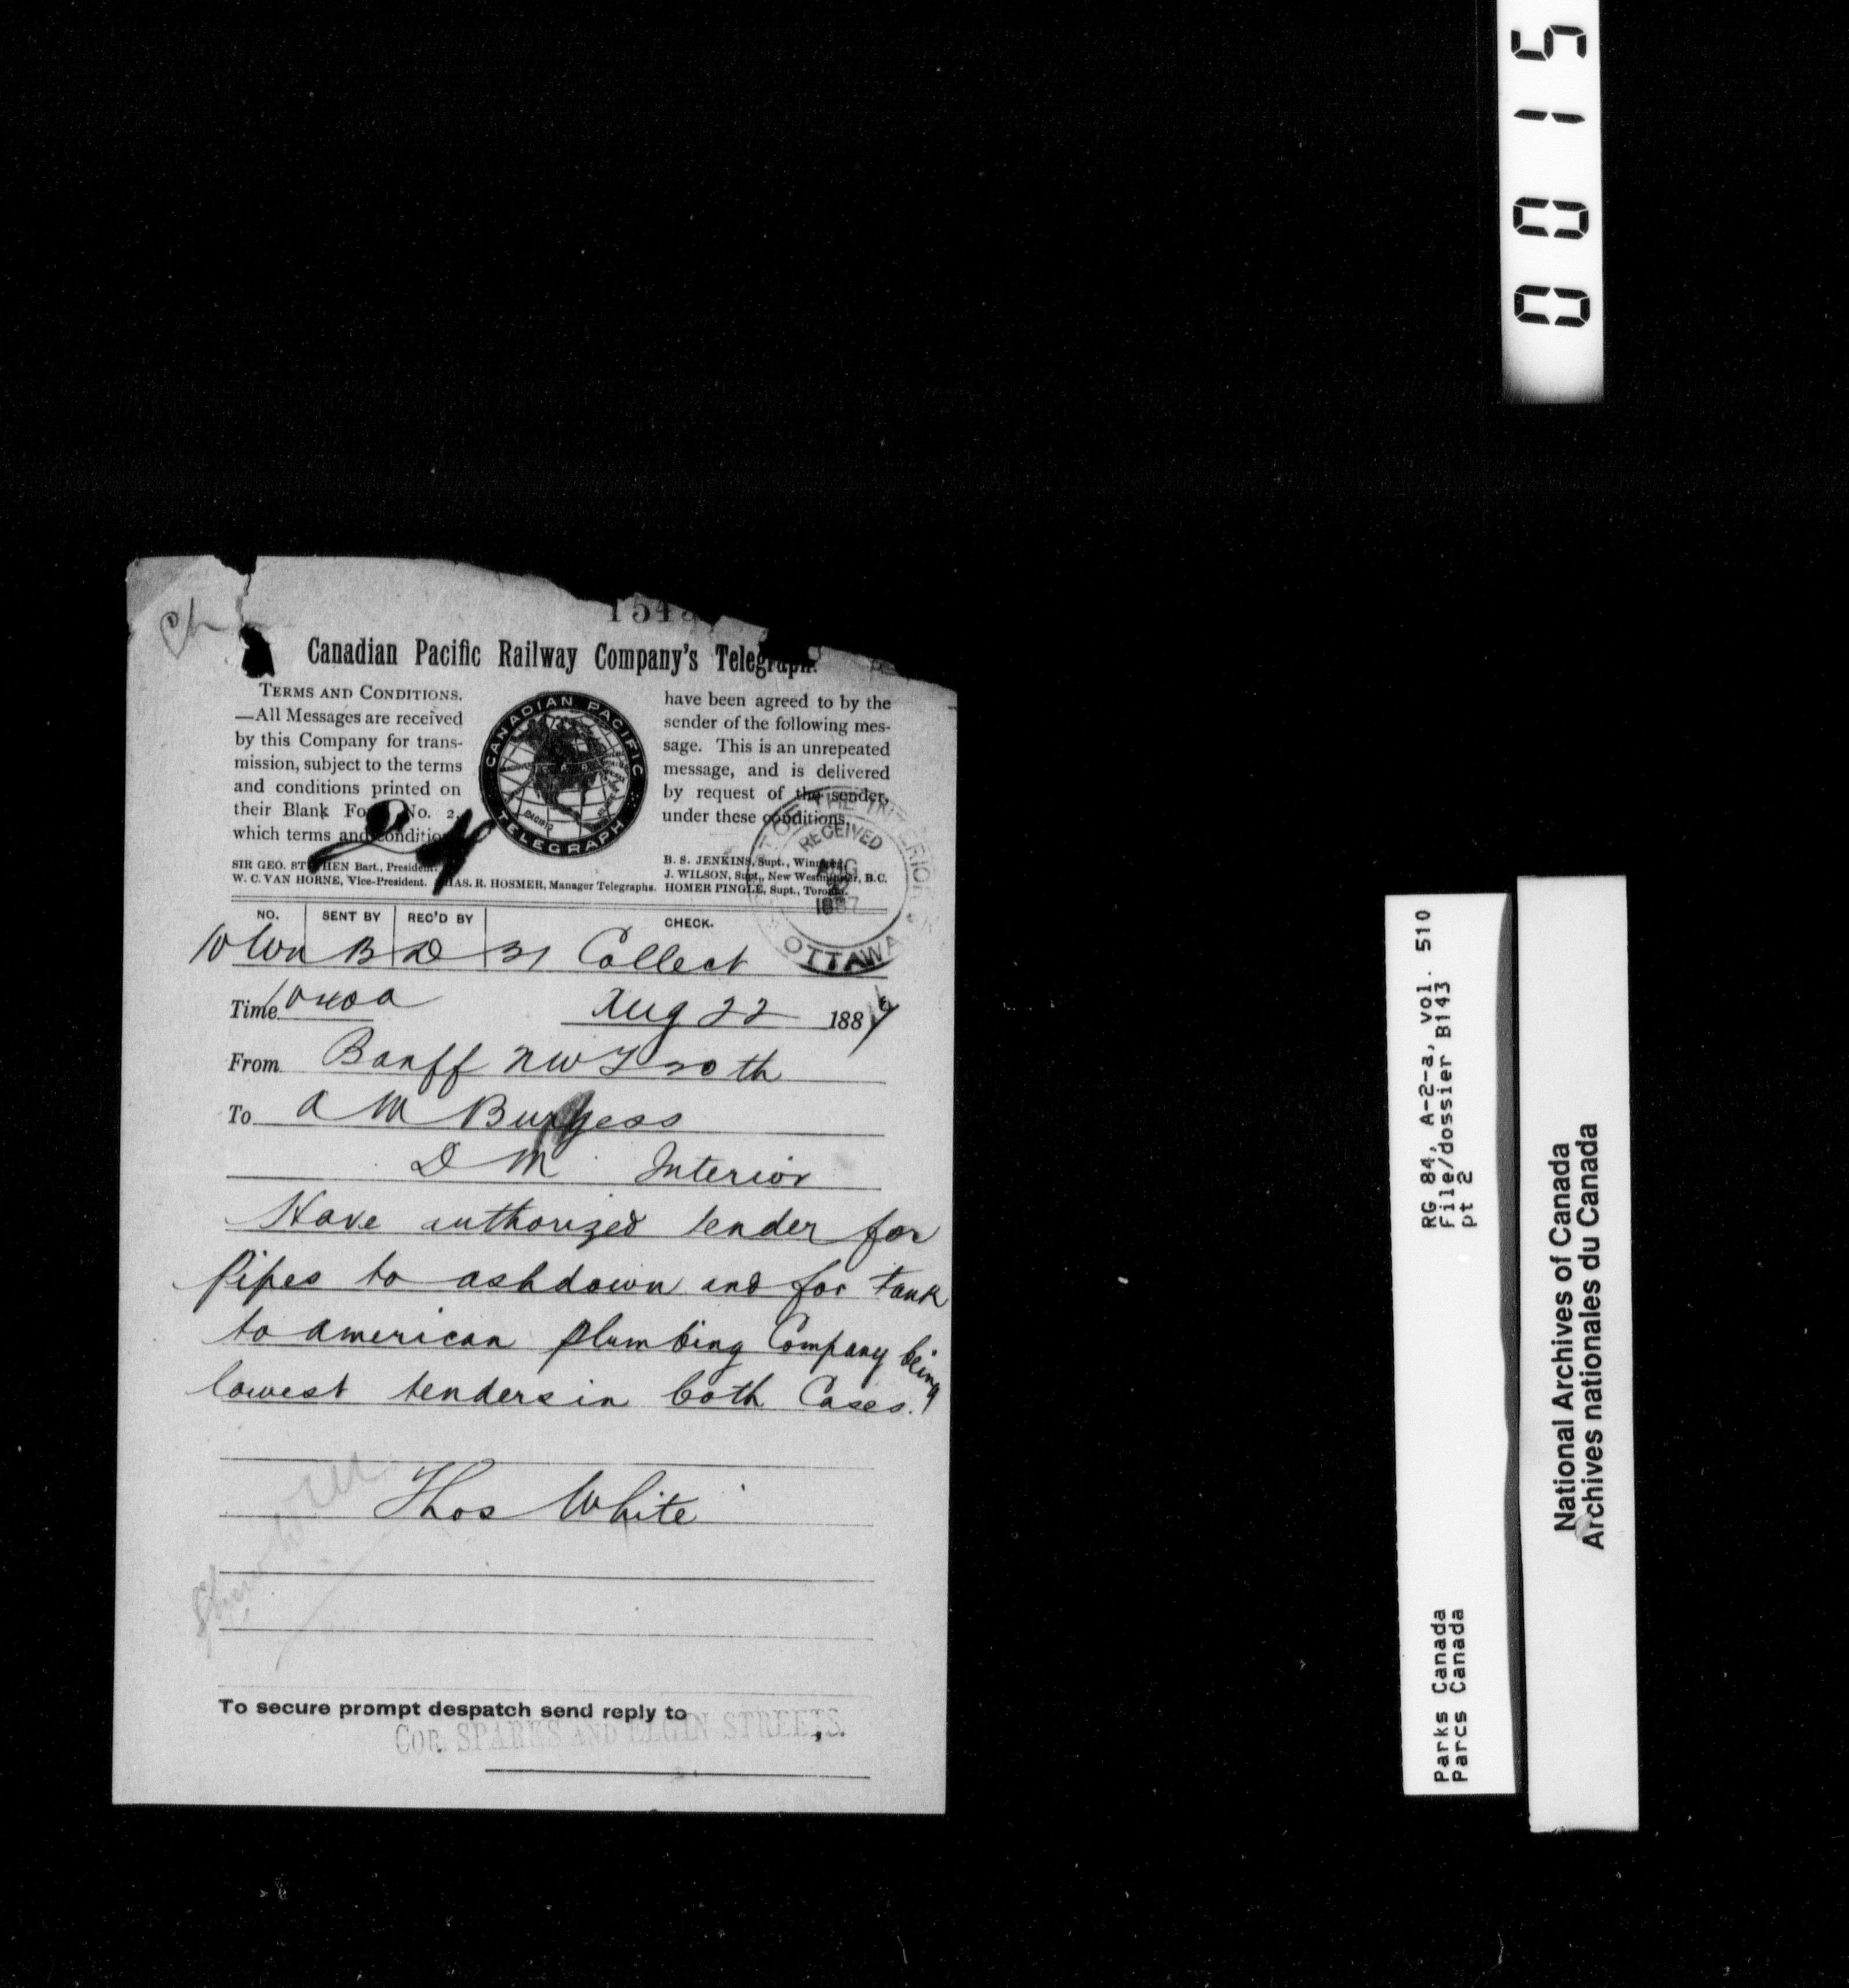 0015
1543
Canadian Pacific Railway Company's Telegraph.
TERMS AND CONDITIONS.
—All Messages are received
by this Company for trans-
mission, subject to the terms
and conditions printed on
their Blank Form No. 2,
which terms and conditions
have been agreed to by the
sender of the following mes-
sage. This is an unrepeated
message, and is delivered
by request of the sender,
under these conditions.
CANADIAN PACIFIC
TELEGRAPH
SIR GEO. STEPHEN Bart., President.
W. C. VAN HORNE, Vice-President. CHAS. R. HOSMER, Manager Telegraphs.
B. S. JENKINS, Supt., Winnipeg.
J. WILSON, Supt., New Westminster, B.C.
HOMER PINGLE, Supt., Toronto.
OF THE INTERIOR
RECEIVED
AUG
1887
OTTAWA
NO. SENT BY REC'D BY CHECK.
10 Wn B D 31 Collect
Time
Aug 22 1887
From Banff NWT 20th
To A M Burgess
D M Interior
Have authorized tender for
Pipes to ashdown and for tank
to american plumbing Company being
lowest tenders in both Cases.
Thos White
To secure prompt despatch send reply to
COR. SPARKS AND ELGIN STREETS.
RG 84, A-2-a, Vol. 510
File/dossier B143
pt 2
Parks Canada
Parcs Canada
National Archives of Canada
Archives nationales du Canada